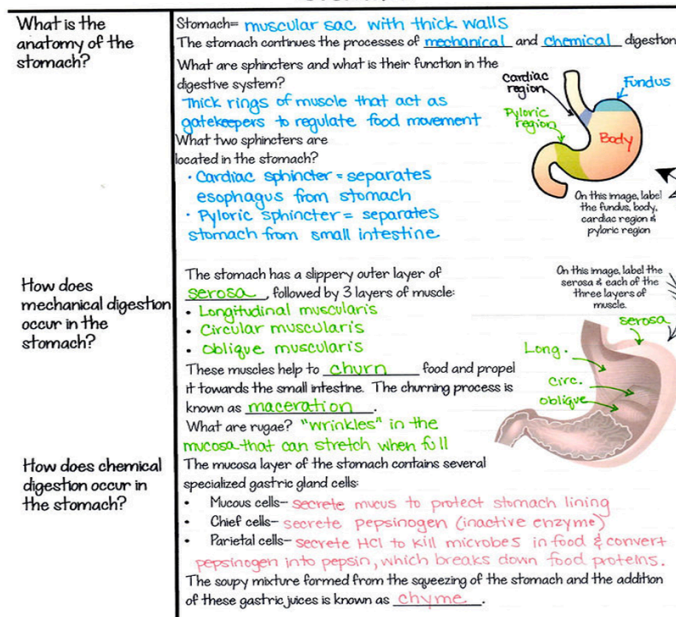 What is the
anatomy of the
stomach?
Stomach= muscular sac with thick walls
The stomach continues the processes of mechanical and chemical digestion
What are sphincters and what is their function in the
digestive system?
Thick rings of muscle that act as
gatekeepers to regulate food movement
What two sphincters are
located in the stomach?
• Cardiac sphincter = separates
esophagus from stomach
• Pyloric sphincter = separates
stomach from small intestine
Cardiac
region
Fundus
Pyloric
region
Body
On this image, label
the fundus, body,
cardiac region &
pyloric region
How does
mechanical digestion
occur in the
stomach?
The stomach has a slippery outer layer of
serosa, followed by 3 layers of muscle:
• Longitudinal muscularis
• Circular muscularis
• Oblique muscularis
These muscles help to churn food and propel
it towards the small intestine. The churning process is
known as maceration.
What are rugae? "Wrinkles" in the
mucosa that can stretch when full
On this image, label the
serosa & each of the
three layers of
muscle.
serosa
Long.
circ.
oblique
How does chemical
digestion occur in
the stomach?
The mucosa layer of the stomach contains several
specialized gastric gland cells:
• Mucous cells- secrete mucus to protect stomach lining
• Chief cells- secrete pepsinogen (inactive enzyme)
• Parietal cells- secrete HCl to kill microbes in food & convert
pepsinogen into pepsin, which breaks down food proteins.
The soupy mixture formed from the squeezing of the stomach and the addition
of these gastric juices is known as chyme.